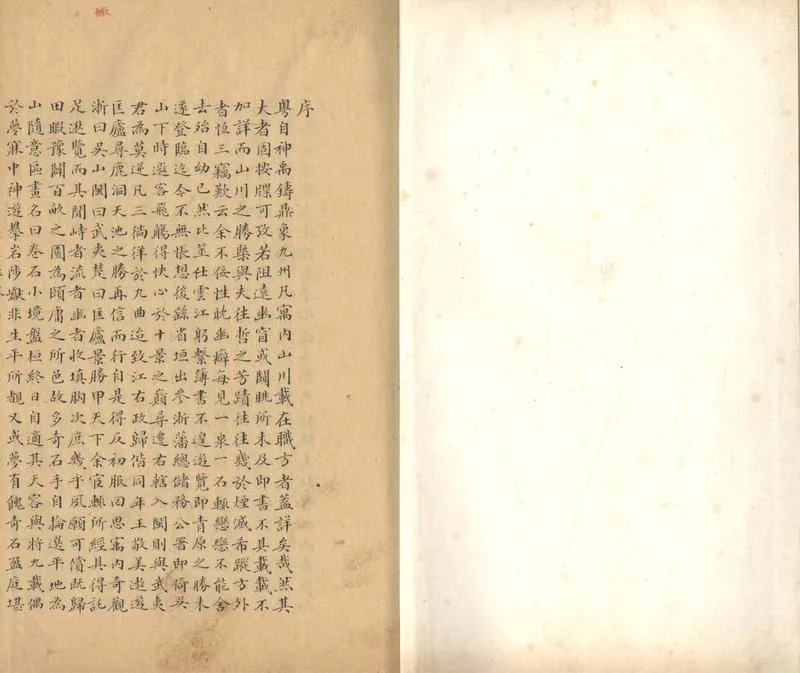 序
粵自神禹鑄鼎象九州凡寓內山川載在職方者蓋詳矣哉然其
大者固按牒可攷若阻遠幽窅或闢眺所未及即書不具載載不
加詳而山川之勝槩與夫往哲之芳蹟往往幾於煙滅希蹤方外
者恆三竊歎云余不佞性眈幽癖每見一泉一石輒戀戀不能舍
去殆自幼已然比筮仕雲江躬繫薄書不遑遊覽即青原之勝未
遂登臨迄今不無悵想後繇省垣出參浙藩總儲務公署即倚吳
山下時邀客飛觴得快心於十景之巔尋遷右轄入閩則與武夷
君為莫逆凡三徜徉於九曲迨致江右政歸偕同年王敬美遨遊
匡廬尋鹿洞天池之勝再信而行自是得反初服回思寓內奇觀
浙曰吳山閩曰武夷楚曰匡廬景勝甲天下余宦轍所經具得託
足遊覽而其閒峙者流者幽者收填胸次庶幾乎夙願可償既歸
田暇豫闢百畝之園為頤庸之所邑故多奇石手自掄選平地為
山隨意區畫名曰卷石小境盤桓終日自適其天容與將九載偶
於夢寐中神遊攀岩陟巘非生平所覩又或夢有餽奇石盈庭堪